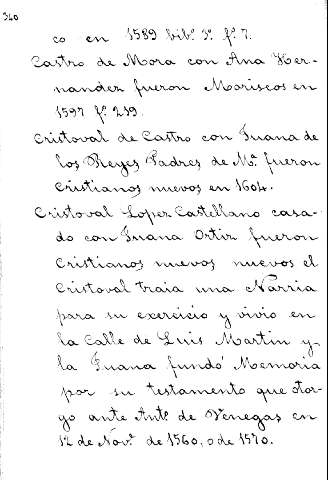 360
co en 1589 lib.º 3.º f.º 7.
Castro de Mora con Ana Her-
nandez fueron Moriscos en
1597 f.º 219.
Cristoval de Castro con Juana de
los Reyes Padres de M.ª fueron
Cristianos nuevos en 1604.
Cristoval Lopez Castellano casa-
do con Juana Ortiz fueron
Cristianos nuevos nuevos el
Cristoval traia una Narria
para su exercicio y vivio en
la Calle de Luis Martin y
la Juana fundó Memoria
por su testamento que otor-
go ante Ant.º de Venegas en
12 de Nov.e de 1560, o de 1570.